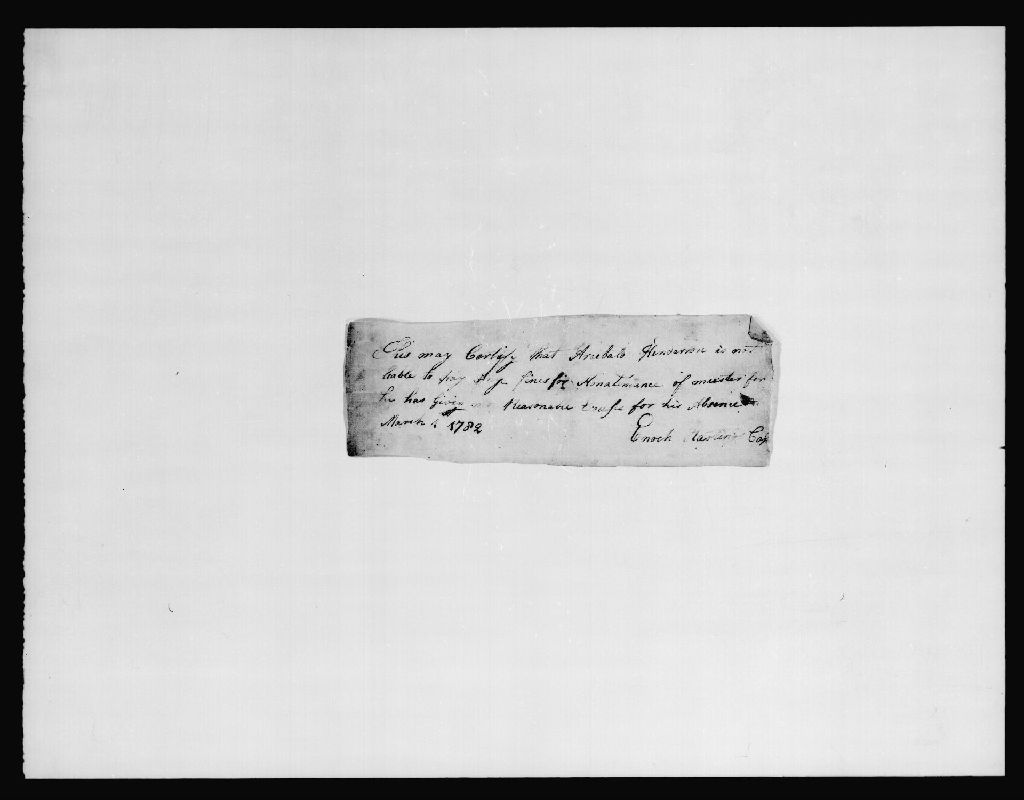 This may Certify that Archabald Henderson is not
liable to pay ye fines for Nonattinance of muster for
he has Given me Reasonable Excuse for his Absence
March 4 1782
Enoch Cap